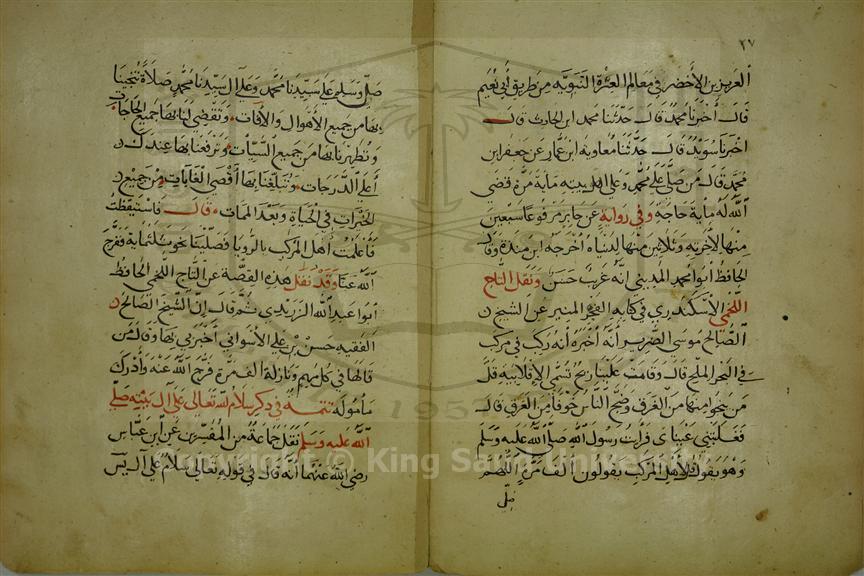 ٢٧
العزيز بن الأخضر في معالم العترة النبوية من طريق أبي نعيم
قال أخبرنا محمد قال حدثنا محمد ابن الحارث قال
اخبرنا سويد قال حدثنا معاوية ابن عمار عن جعفر ابن
محمد قال من صلى على محمد وعلى اهل بيته ماية مرة قضى
الله له ماية حاجة وفي رواية عن جابر مرفوعا سبعين
منها لاخرته وثلاثين منها لدنياه أخرجه ابن مندة وقال
الحافظ أبوا محمد المديني انه غريب حسن ونقل التاج
اللخمي الاسكندري في كتابه الفجر المنير عن الشيخ
الصالح موسى الضرير انه أخبره أنه ركب في مركب
في البحر الملح قال وقامت علينا ريح تسمى الاقلابية قل
من ينجوا منها من الغرق وضج الناس خوفا من الغرق قال
فغلبتني عيناي فرأيت رسول الله صلى الله عليه وسلم
وهو يقول لأهل المركب يقولون ألف مرة اللهم
صل
صل وسلم على سيدنا محمد وعلى آل سيدنا محمد صلاة تنجينا
بها من جميع الأهوال والآفات وتقضي لنا بها جميع الحاجات
وتطهرنا بها من جميع السيئات وترفعنا بها عندك
أعلى الدرجات وتبلغنا بها أقصى الغايات من جميع
الخيرات في الحياة وبعد الممات قال فاستيقظت
فأعلمت أهل المركب بالرويا فصلينا نحو ثلثماية ففرج
الله عنا وقد نقل هذه القصة عن التاج اللخمي الحافظ
ابوا عبد الله الزرندي ثم قال إن الشيخ الصالح
الفقيه حسن بن علي الأسواني أخبرني بها وقال من
قالها في كل مهم ونازلة ألف مرة فرج الله عنه وأدرك
مأموله تتمة في ذكر سلام الله تعالى على آل نبيه صلى
الله عليه وسلم نقل جماعة من المفسرين عن ابن عباس
رضي الله عنهما انه قال في قوله تعالى سلام على آل يس
Copyright © King Saud University
195